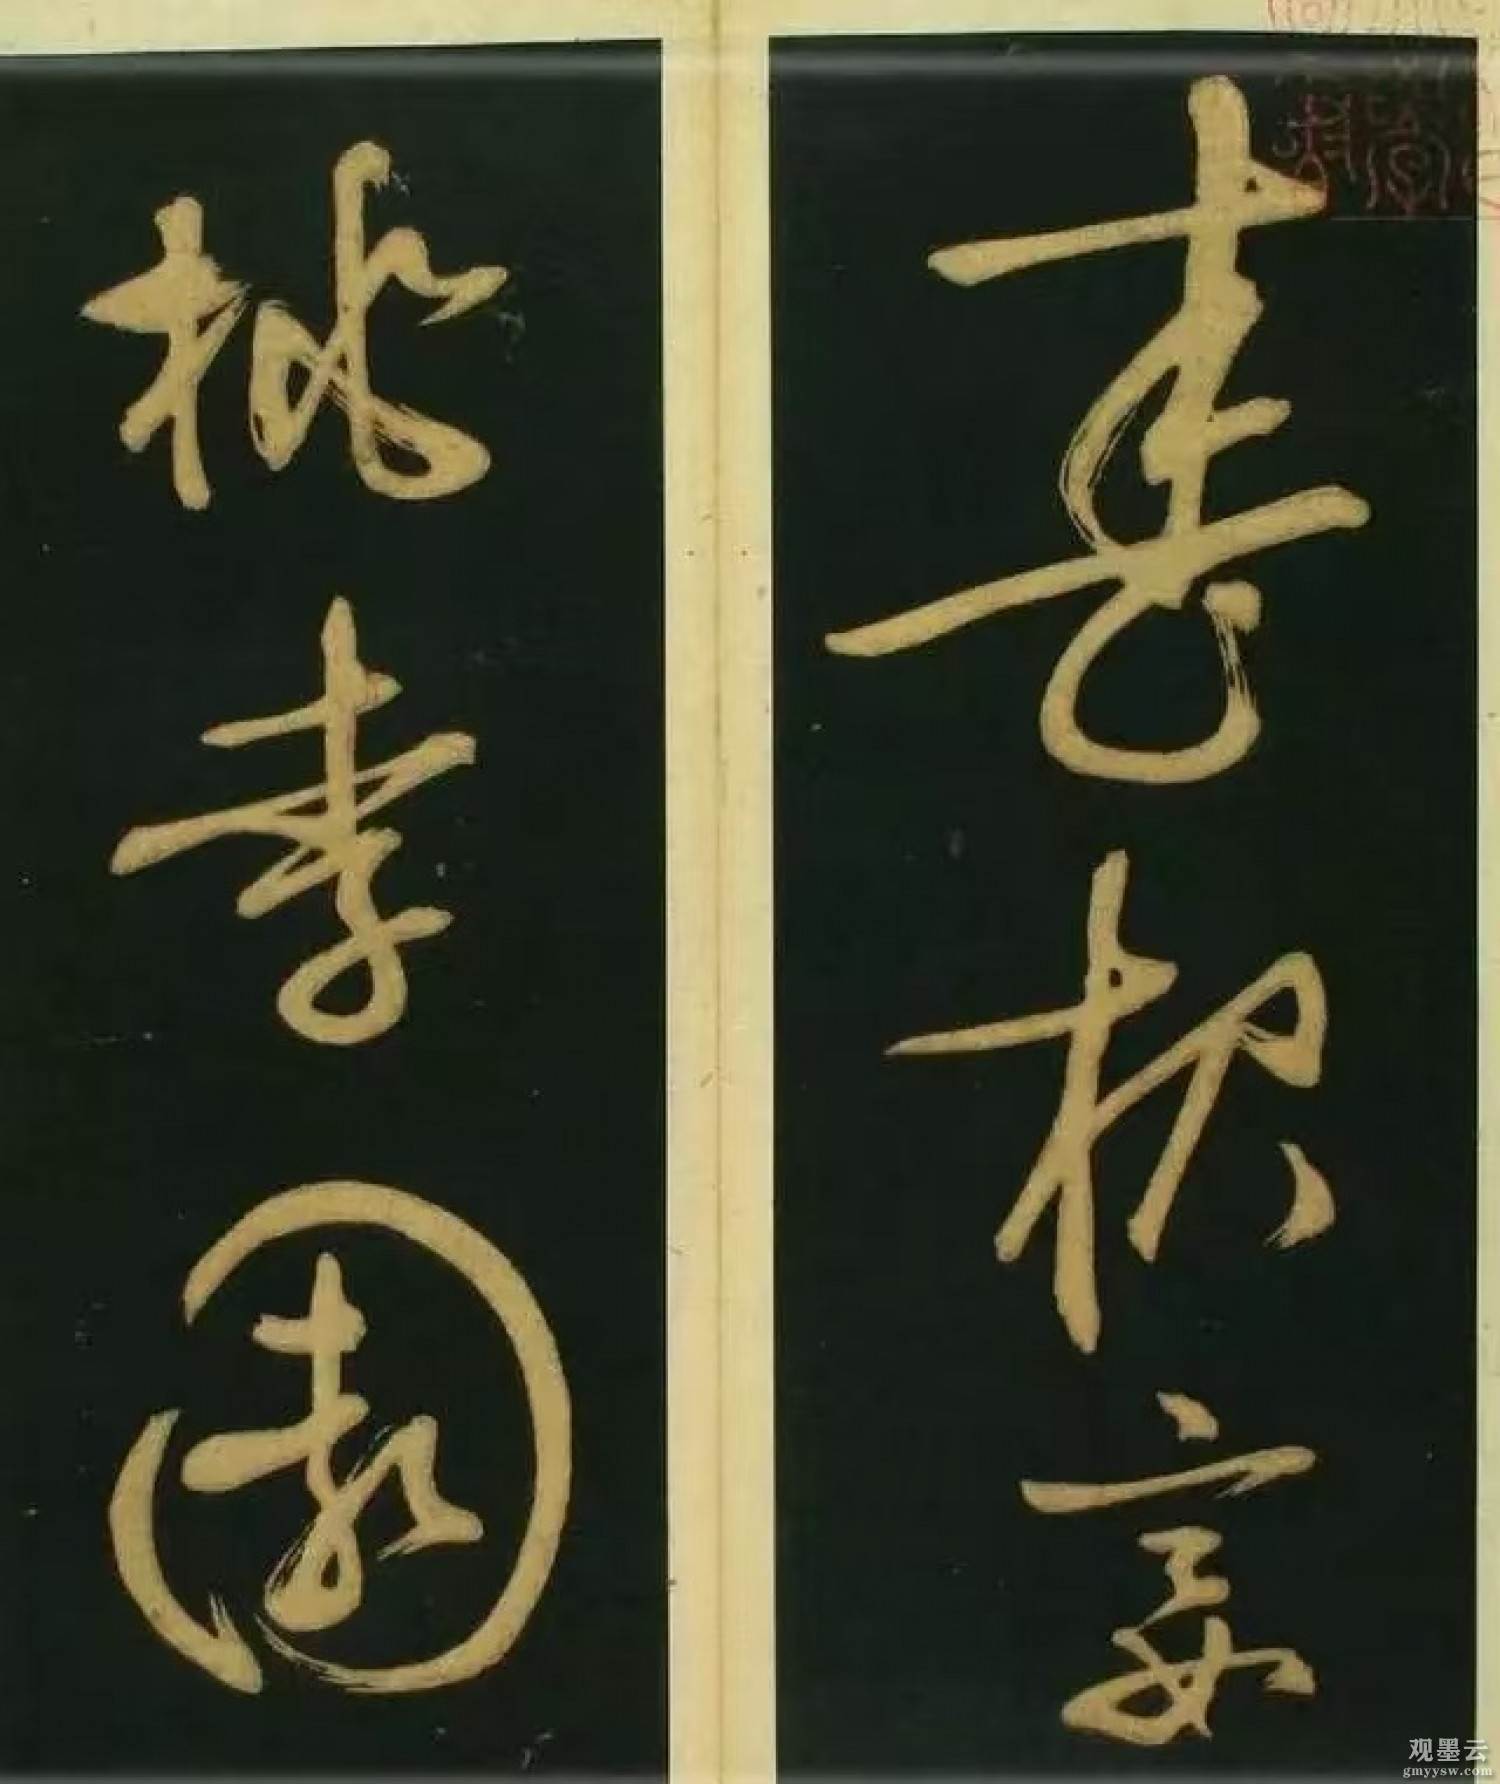 春夜宴
桃李園
观墨云
gmyysw.com